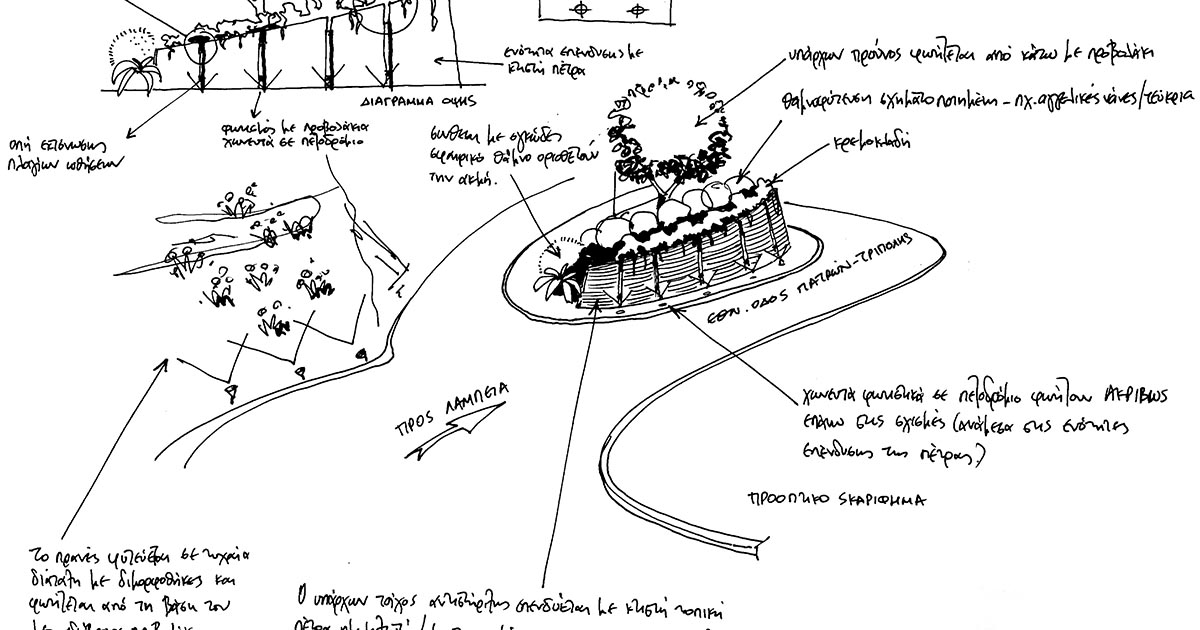 ενότητα επενδυσης με
κτιστή πέτρα
ΔΙΑΓΡΑΜΜΑ ΟΨΗΣ
οπή εκτόνωσης
πλαγίων ωθήσεων
φωτισμός με προβολάκια
χωνευτά σε πεζοδρόμιο
σύνθεση με ογκώδες
σφαιρικό θάμνο οριοθετούν
την ακμή.
υπάρχων προύνος φωτίζεται από κάτω με προβολάκι
θαμνοφύτευση σχηματοποιημένη - πχ. αγγελικές νάνες/τεύκρια
κρεμοκλαδή
ΕΘΝ. ΟΔΟΣ ΠΑΤΡΩΝ-ΤΡΙΠΟΛΗΣ
ΠΡΟΣ ΛΑΜΠΕΙΑ
χωνευτά φωτιστικά σε πεζοδρόμιο φωτίζουν ΑΚΡΙΒΩΣ
επάνω στις σχισμές (ανάμεσα στις ενότητες
επένδυσης της πέτρας)
ΠΡΟΟΠΤΙΚΟ ΣΚΑΡΙΦΗΜΑ
το πρανές φυτεύεται σε τυχαία
διάταξη με διμορφοθήκες και
φωτίζεται από τη βάση του
Ο υπάρχων τοίχος αντιστήριξης επενδύεται με κτιστή τοπική
πέτρα